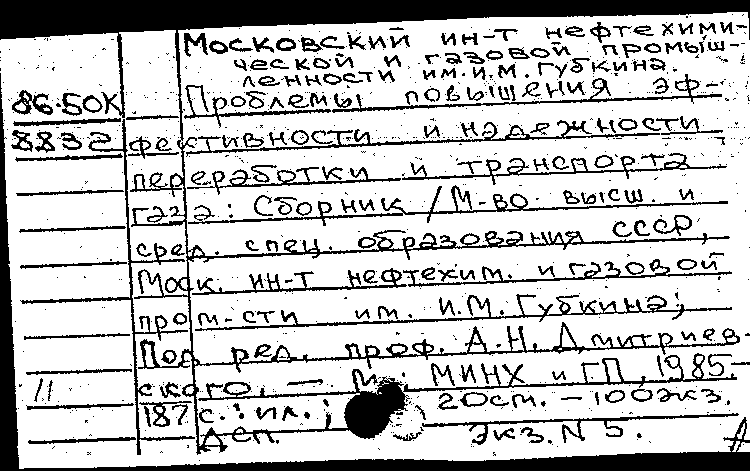 Московский ин-т нефтехими-
ческой и газовой промыш-
ленности им. И.М. Губкина.
86.50К Проблемы повышения эф-
8832 фективности и надежности
переработки и транспорта
газа: Сборник / М-во высш. и
сред. спец. образования СССР,
Моск. ин-т нефтехим. и газовой
пром-сти им. И.М. Губкина;
Под ред. проф. А.Н. Дмитриев-
11 ского. — М.: МИНХ и ГП, 1985.
187 с.: ил.; 20см. – 100экз.
Деп. Экз. N 5. А